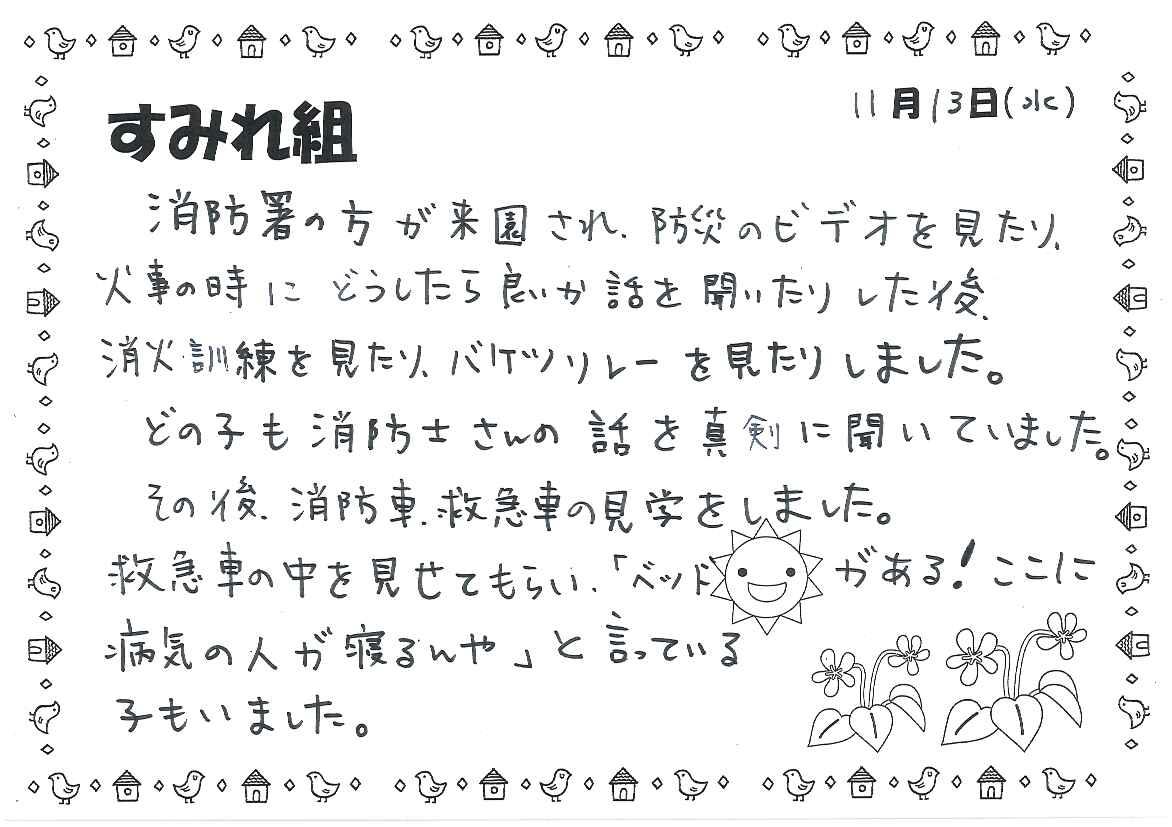 11月13日(水)
すみれ組
消防署の方が来園され、防災のビデオを見たり、
火事の時にどうしたら良いか話を聞いたりした後、
消火訓練を見たり、バケツリレーを見たりしました。
どの子も消防士さんの話を真剣に聞いていました。
その後、消防車、救急車の見学をしました。
救急車の中を見せてもらい、「ベッドがある!ここに
病気の人が寝るんや」と言っている
子もいました。